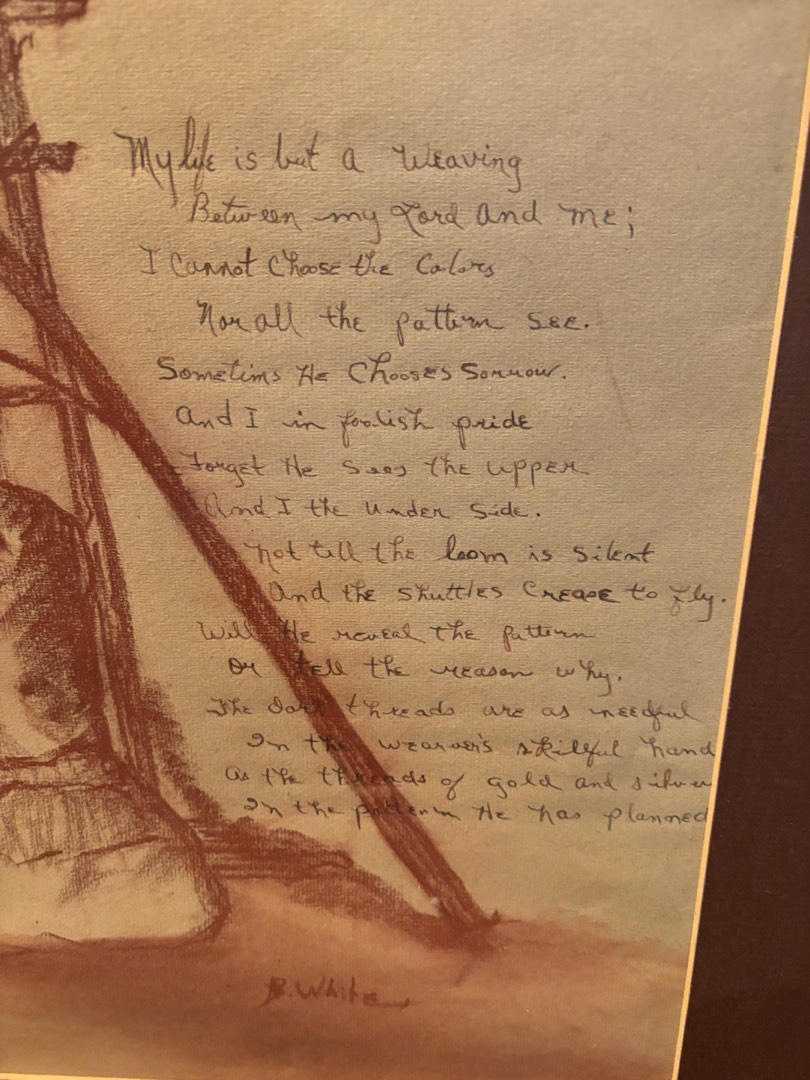 My life is but a Weaving
Between my Lord and me;
I Cannot Choose the Colors
Nor all the pattern see.
Sometims He Chooses Sorrow.
And I in foolish pride
Forget He Sees the upper
And I the under side.
Not till the loom is silent
And the shuttles Crease to fly.
Will He reveal the pattern
Or tell the reason why.
The dark threads are as needful
In the wearver's skilful hand
as the threads of gold and silver
In the pattern He has planned
B. White